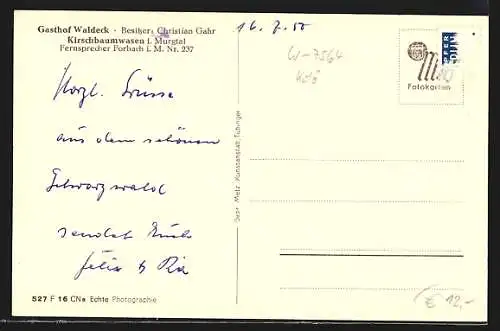 Gasthof Waldeck · Besitzer: Christian Gahr
Kirschbaumwasen i. Murgtal
Fernsprecher Forbach i. M. Nr. 237
16. 7. 50
W-7564
Metz
Fotokarten
Herzl. Grüsse
aus dem schönen
Schwarzwald
sendet Euch
Felix & Ria
Gebr. Metz Kunstanstalt, Tübingen
527 F 16 CNe Echte Photographie
€ 12,-